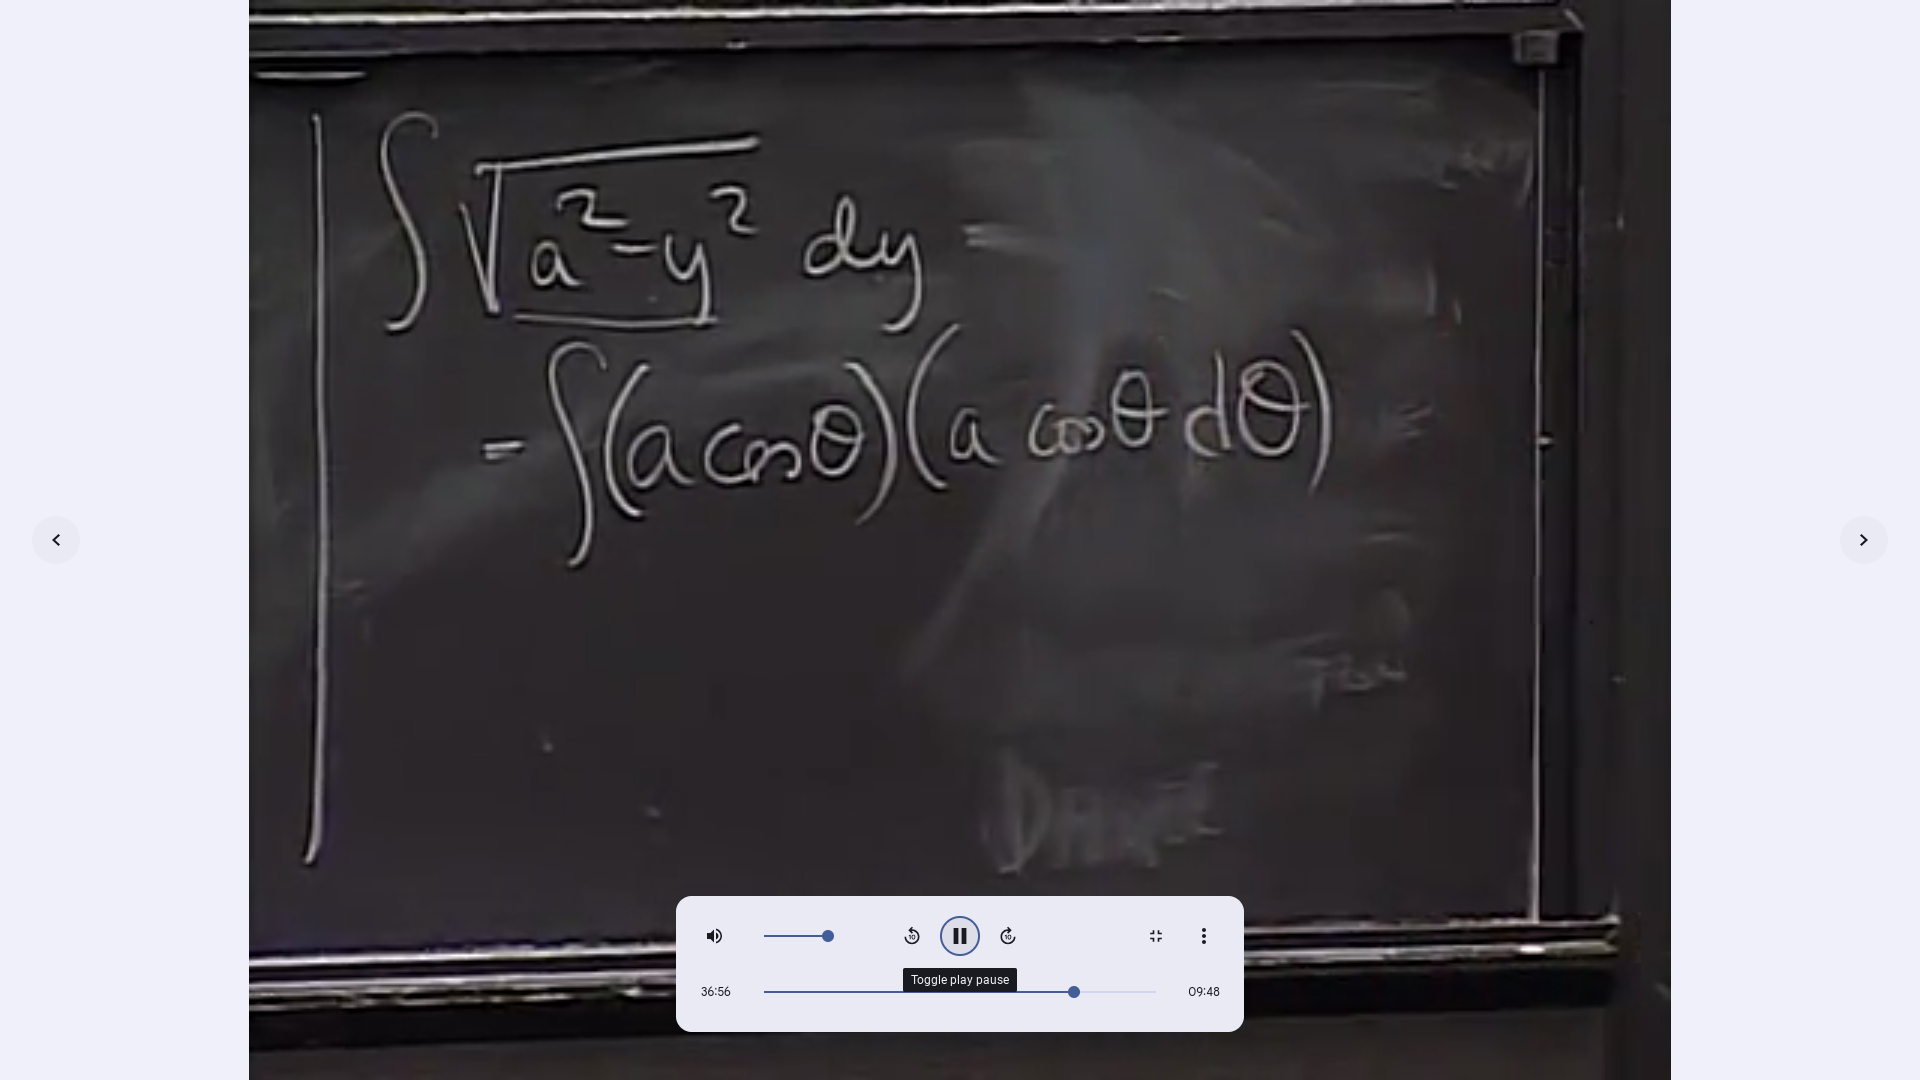 ∫ √(a² - y²) dy =
= ∫ (a cos θ)(a cos θ dθ)
10
10
Toggle play pause
36:56
09:48